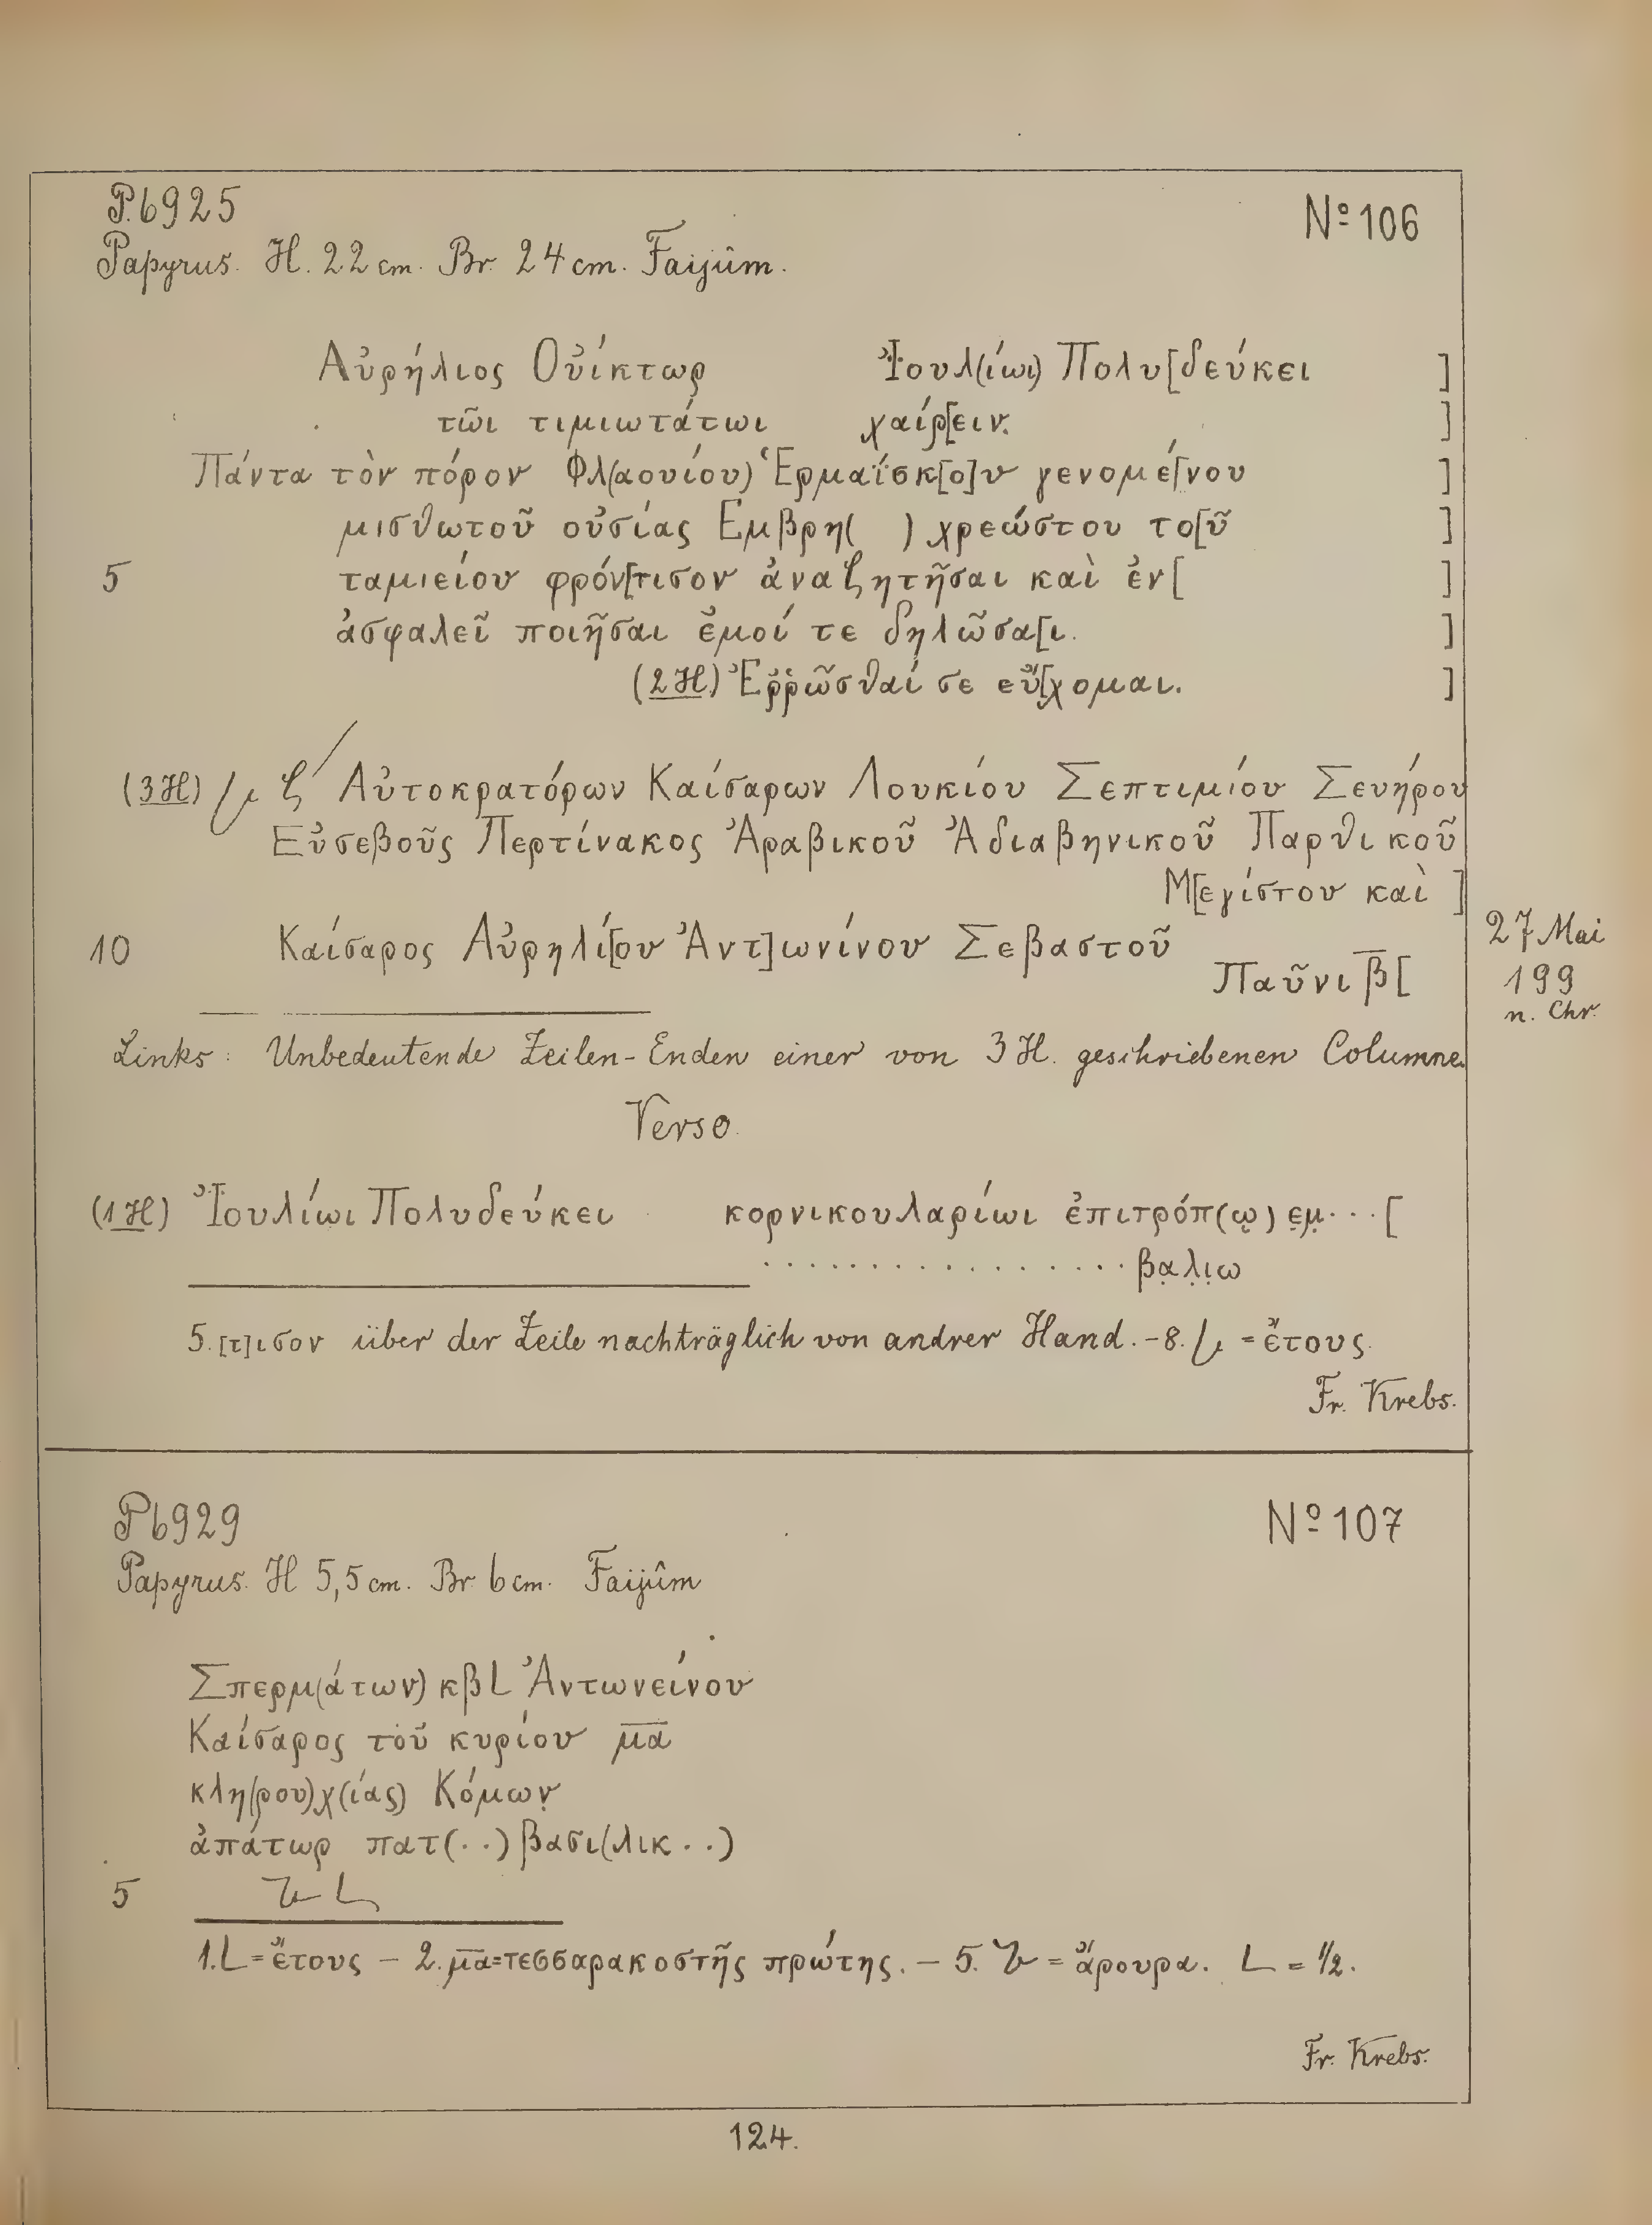 P. 6925
Nº 106
Papyrus. H. 22 cm. Br. 24 cm. Faijûm.
Αὐρήλιος Οὐίκτωρ Ἰουλ(ίωι) Πολυ[δεύκει ]
τῶι τιμιωτάτωι χαίρ[ειν. ]
Πάντα τὸν πόρον Φλ(αουίου) Ἑρμαΐσκ[ο]υ γενομέ[νου ]
μισθωτοῦ οὐσίας Εμβρη( ) χρεώστου το[ῦ ]
5 ταμιείου φρόν[τισον ἀναζητῆσαι καὶ ἐν[ ]
ἀσφαλεῖ ποιῆσαι ἐμοί τε δηλῶσα[ι. ]
(2 H) Ἐρρῶσθαί σε εὔ[χομαι. ]
(3 H) 𐅹 ζ/ Αὐτοκρατόρων Καίσαρων Λουκίου Σεπτιμίου Σευήρου
Εὐσεβοῦς Περτίνακος Ἀραβικοῦ Ἀδιαβηνικοῦ Παρθικοῦ
Μ[εγίστου καὶ ]
10 Καίσαρος Αὐρηλί[ου Ἀντ]ωνίνου Σεβαστοῦ
Παῦνι β̅ [
27 Mai
199
n. Chr.
Links: Unbedeutende Zeilen-Enden einer von 3 H. geschriebenen Columne.
Verso.
(1 H) Ἰουλίωι Πολυδεύκει κορνικουλαρίωι ἐπιτρόπ(ῳ) ε̣μ̣...[
................β̣α̣λ̣ι̣ω
5. [τ]ισον über der Zeile nachträglich von andrer Hand. – 8. 𐅹 = ἔτους.
Fr. Krebs.
P 6929
Nº 107
Papyrus. H 5,5 cm. Br. 6 cm. Faijûm
Σπερμ(άτων) κβ L Ἀντωνείνου
Καίσαρος τοῦ κυρίου μ̅α̅
κλη(ρου)χ(ίας) Κόμων̣
ἀπάτωρ πατ(..) βασι(λικ..)
5 𐆄 L
1. L = ἔτους – 2. μ̅α̅ = τεσσαρακοστῆς πρώτης. – 5. 𐆄 = ἄρουρα. L = ½.
Fr. Krebs.
124.